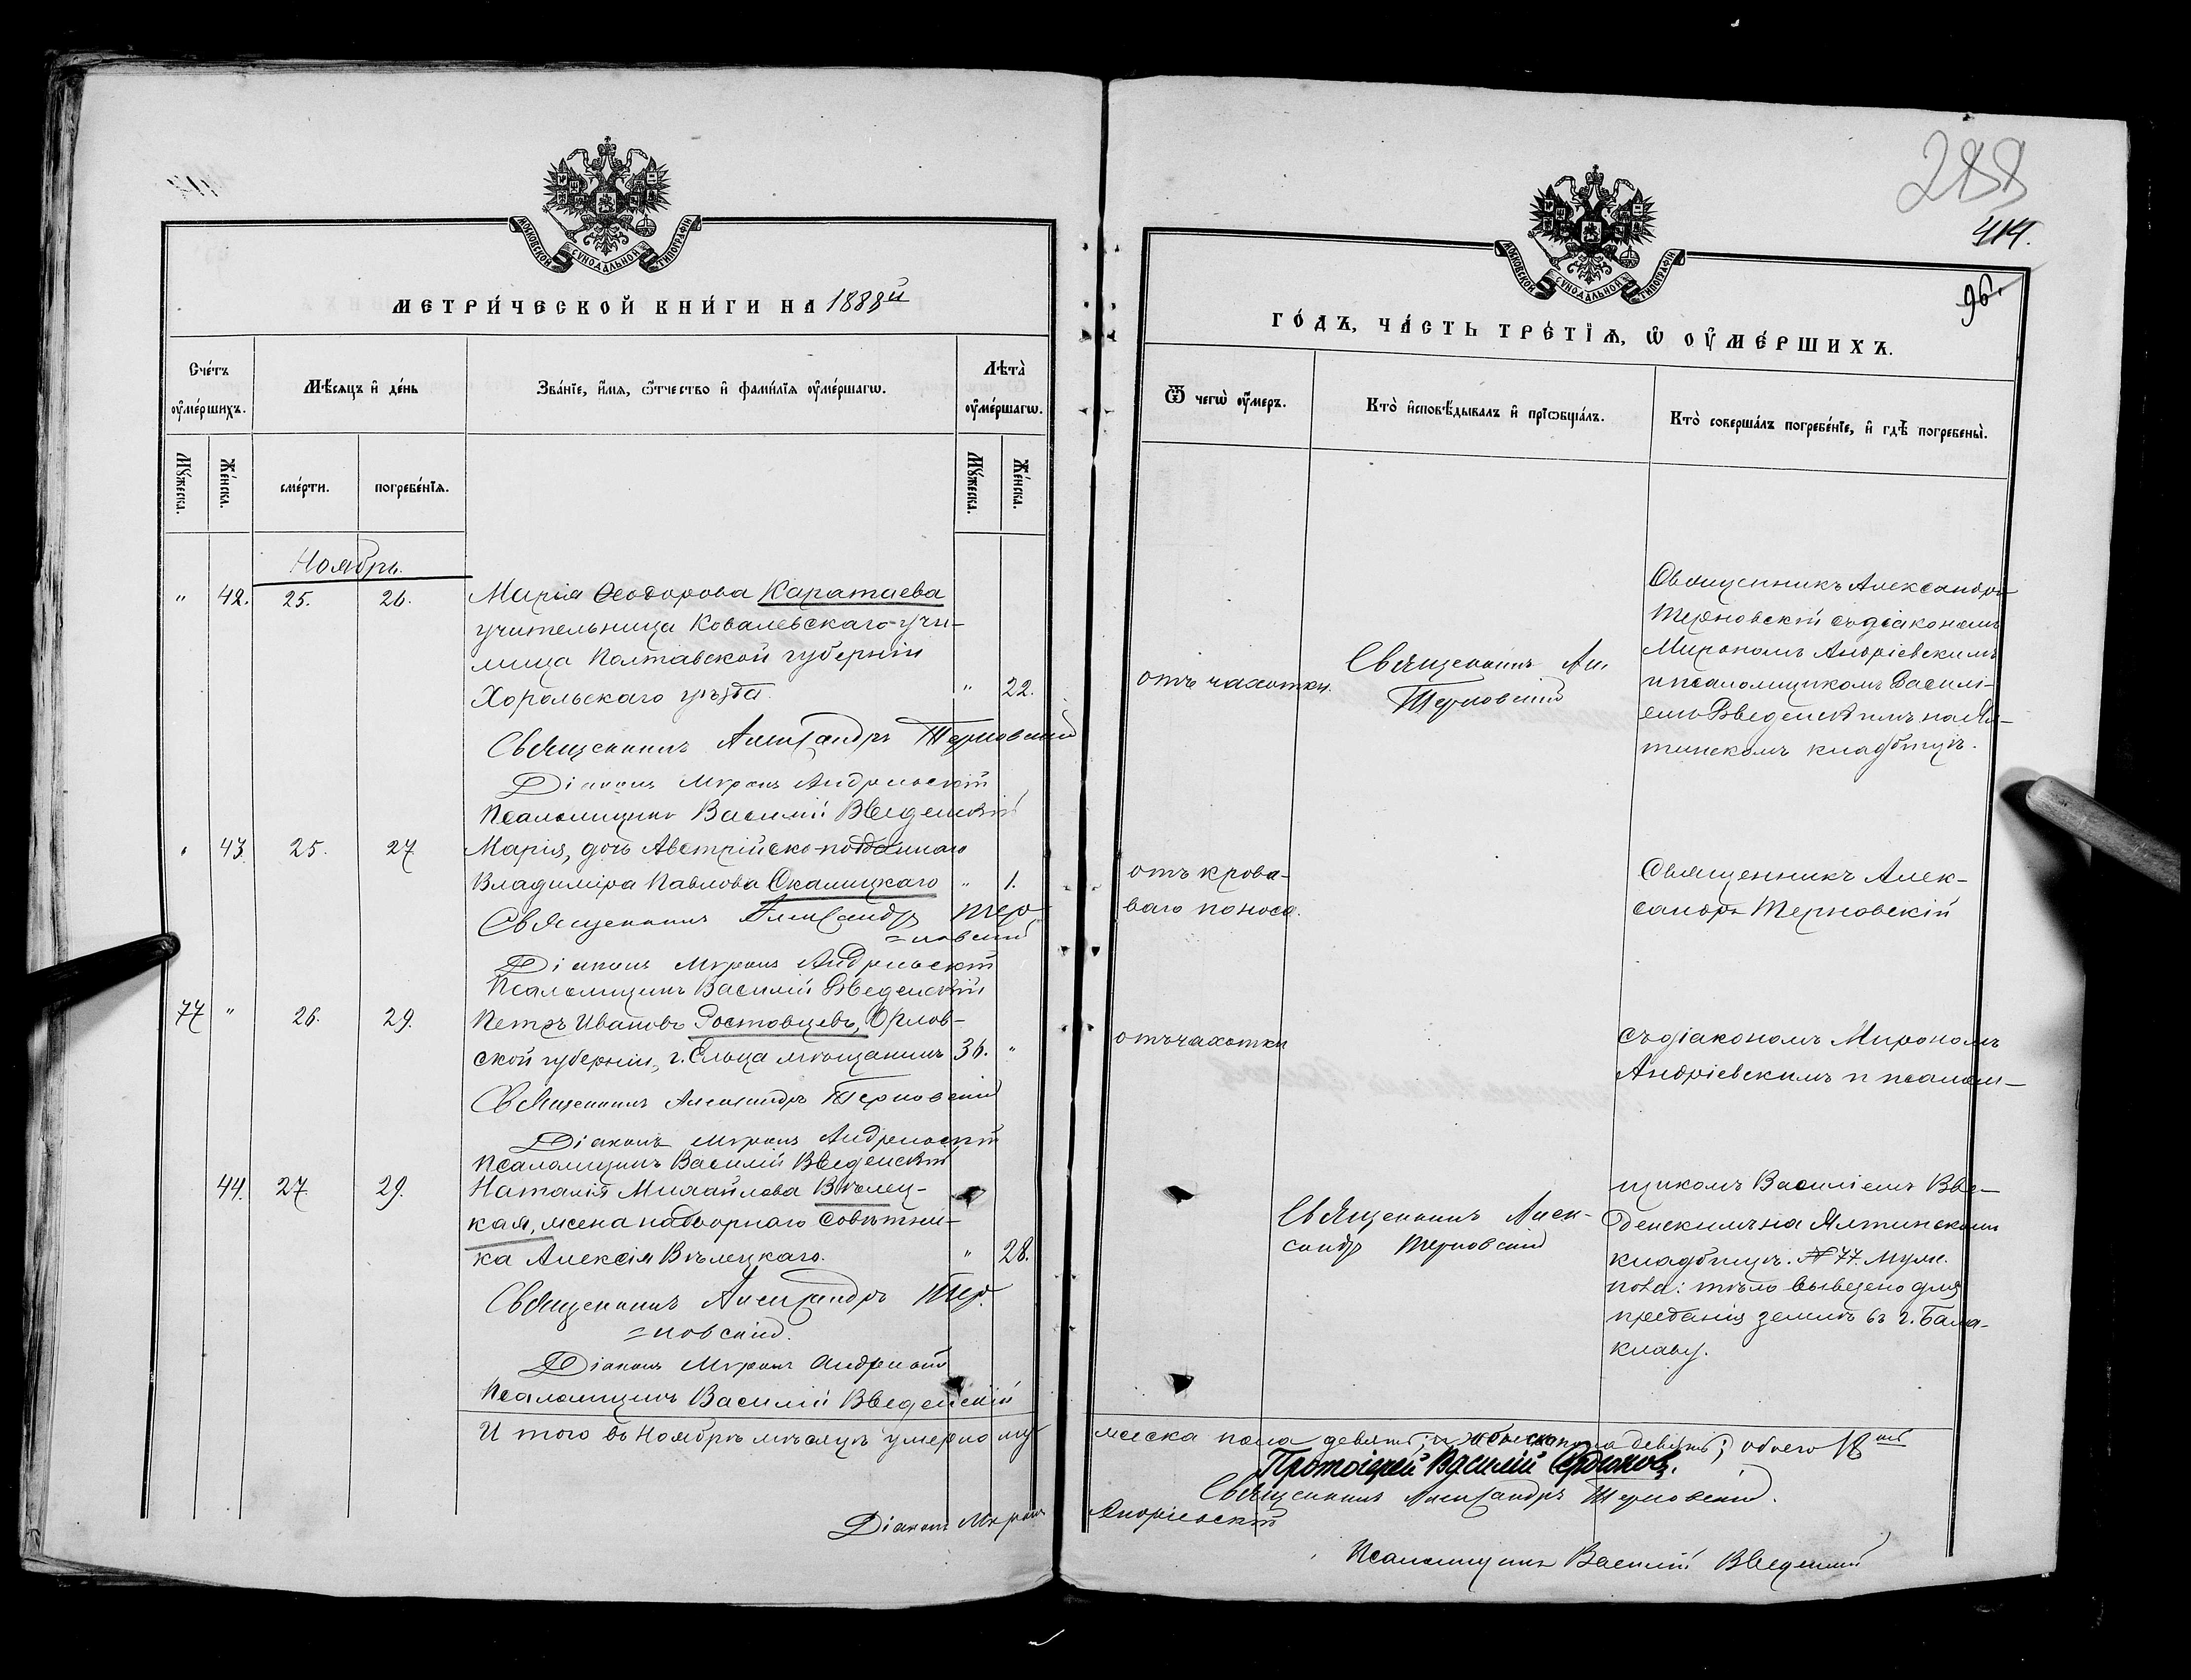 МОСКОВСКОЙ СѴНОДАЛЬНОЙ ТИПОГРАФІИ
МЕТРИ́ЧЕСКОЙ КНИ́ГИ НА 1888й
Счéтъ оу҆мéршихъ.
Мѣ́сяцъ и҆ дéнь
Звáнїе, и҆́мя, ѻ҆́тчество и҆ фами́лїя оу҆мéршагѡ.
Лѣ̀та оу҆мéршагѡ.
Мꙋ́жеска.
Жéнска.
смéрти.
погребéнїя.
Мꙋ́жеска.
Жéнска.
Ноябрь.
" 42. 25. 26. Марія Ѳеодорова Каратаева
учительница Ковалевскаго учи-
лища Полтавской губерніи
Хорольскаго уѣзда. " 22.
Священникъ Александръ Терновскій
Діаконъ Миронъ Андріевскій
Псаломщикъ Василій Введенскій
" 43. 25. 27 Марія, дочь Австрійско-подданнаго
Владиміра Павлова Скалицкаго " 1.
Священникъ Александръ Тер-
=новскій
Діаконъ Миронъ Андріевскій
Псаломщикъ Василій Введенскій
77 " 26. 29. Петръ Ивановъ Ростовцевъ, Орлов-
ской губерніи, г. Ельца мѣщанинъ 36. "
Священникъ Александръ Терновскій
Діаконъ Миронъ Андріевскій
Псаломщикъ Василій Введенскій
44. 27. 29. Наталія Михайлова Вѣлец-
кая, жена надворнаго совѣтни-
ка Алексія Вѣлецкаго. " 28.
Священникъ Александръ Тер-
=новскій.
Діаконъ Миронъ Андріевскій
Псаломщикъ Василій Введенскій
И того въ Ноябрѣ мѣсяцѣ умерло му
Діаконъ Миронъ
288
414.
96.
МОСКОВСКОЙ СѴНОДАЛЬНОЙ ТИПОГРАФІИ
ГО́ДЪ, ЧА́СТЬ ТРЕ́ТЇѦ, Ѡ҆ ОУ҆МЕ́РШИХЪ.
Ѿ чегѡ̀ оу҆́меръ.
Кто̀ и҆сповѣ́дывалъ и҆ прїѡбщáлъ.
Кто̀ совершáлъ погребéнїе, и҆ гдѣ̀ погребены̀.
отъ чахотки.
Священникъ Ал.
Терновскій
Священникъ Александръ
Терновскій съ діакономъ
Мирономъ Андріевскимъ
и псаломщикомъ Василі-
емъ Введенскимъ на Ял-
тинскомъ кладбищѣ.
отъ крова-
ваго поноса.
Священникъ Алек-
сандръ Терновскій
отъ чахотки
съ діакономъ Мирономъ
Андріевскимъ и псалом-
Священникъ Алек-
сандръ Терновскій
щикомъ Василіемъ Вве-
денскимъ на Ялтинскомъ
кладбищѣ. № 77. муж.
пола: тѣло вывезено для
преданія землѣ въ г. Бала-
клаву.
жеска пола девять, и женска пола девять; обоего 18
Протоіерей Василій Сердюковъ.
Священникъ Александръ Терновскій.
Андріевскій
Псаломщикъ Василій Введенскій